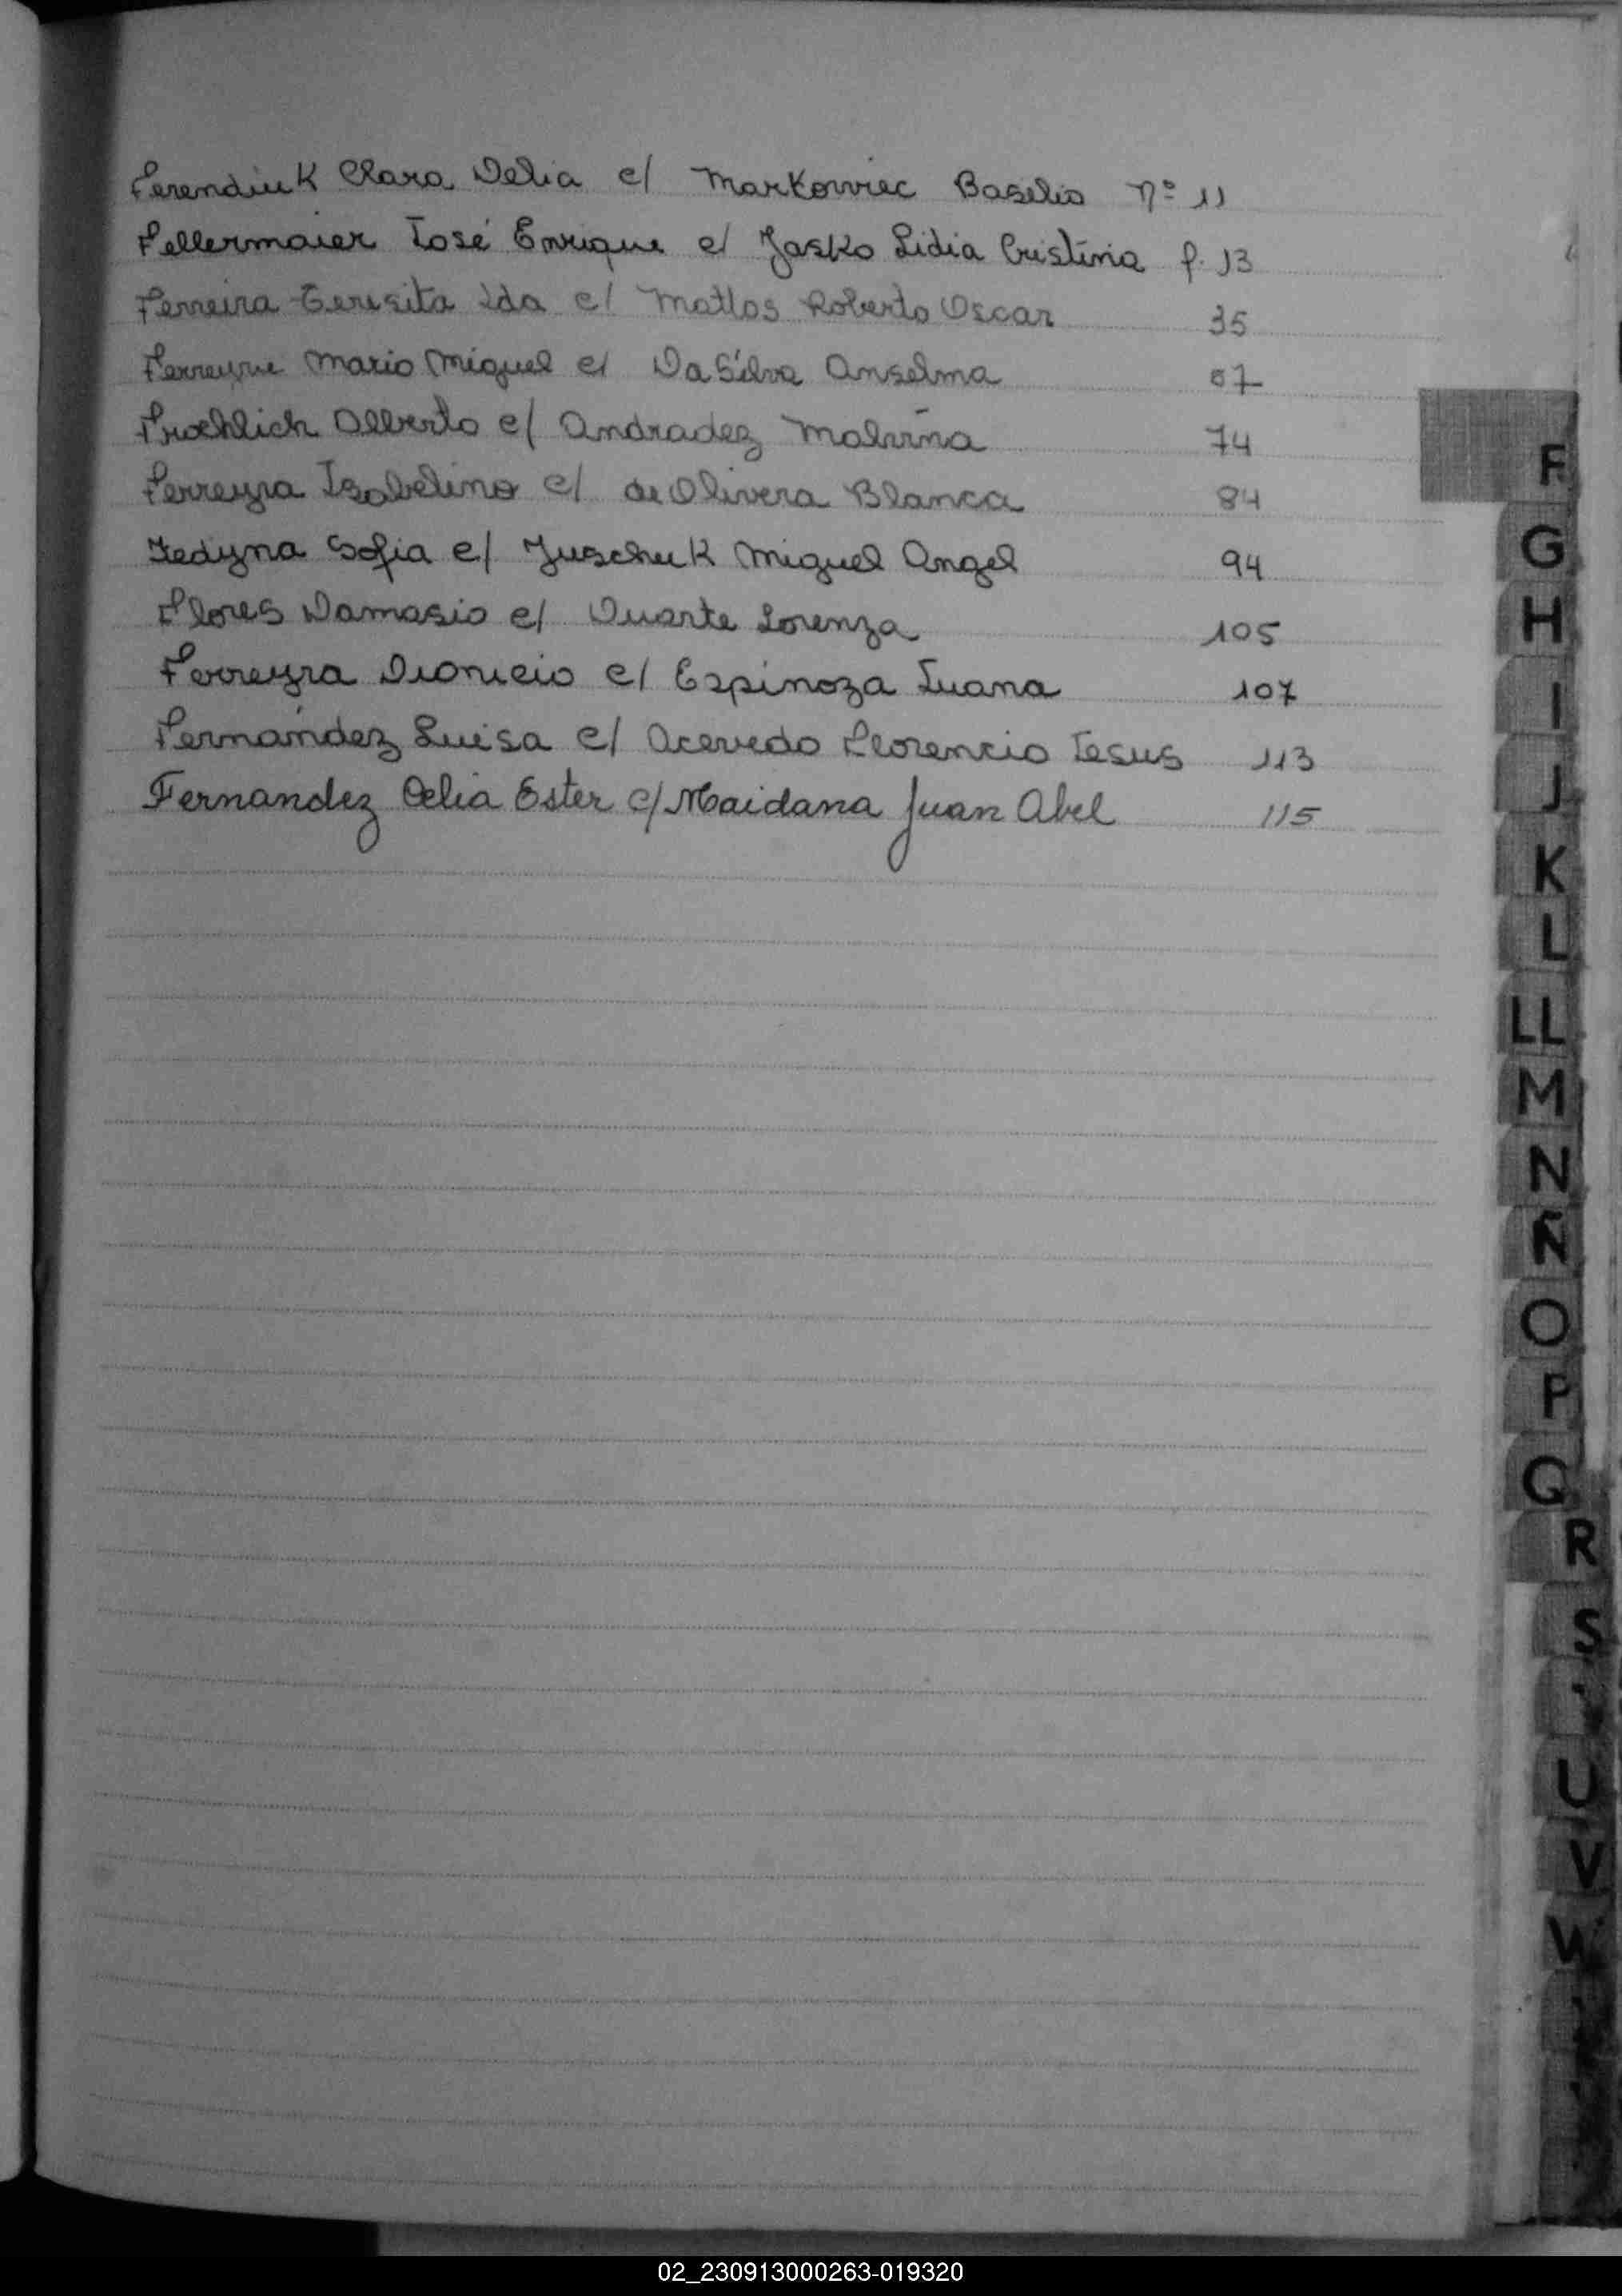 Ferendiuk Clara Delia c/ Markowiec Basilio Nº 11
Fellermaier José Enrique c/ Jasko Lidia Cristina f. 13
Ferreira Teresita Ida c/ Mattos Roberto Oscar 35
Ferreyra Mario Miguel c/ DaSilva Anselma 67
Froehlich Alberto c/ Andradez Malvina 74
Ferreyra Isabelino c/ de Olivera Blanca 84
Fedyna Sofia c/ Juschuk Miguel Angel 94
Flores Damasio c/ Duarte Lorenza 105
Ferreyra Dionicio c/ Espinoza Juana 107
Fernández Luisa c/ Acevedo Florencio Jesus 113
Fernandez Celia Ester c/ Maidana Juan Abel 115
F
G
H
I
J
K
L
LL
M
N
Ñ
O
P
Q
R
S
U
V
W
02_230913000263-019320